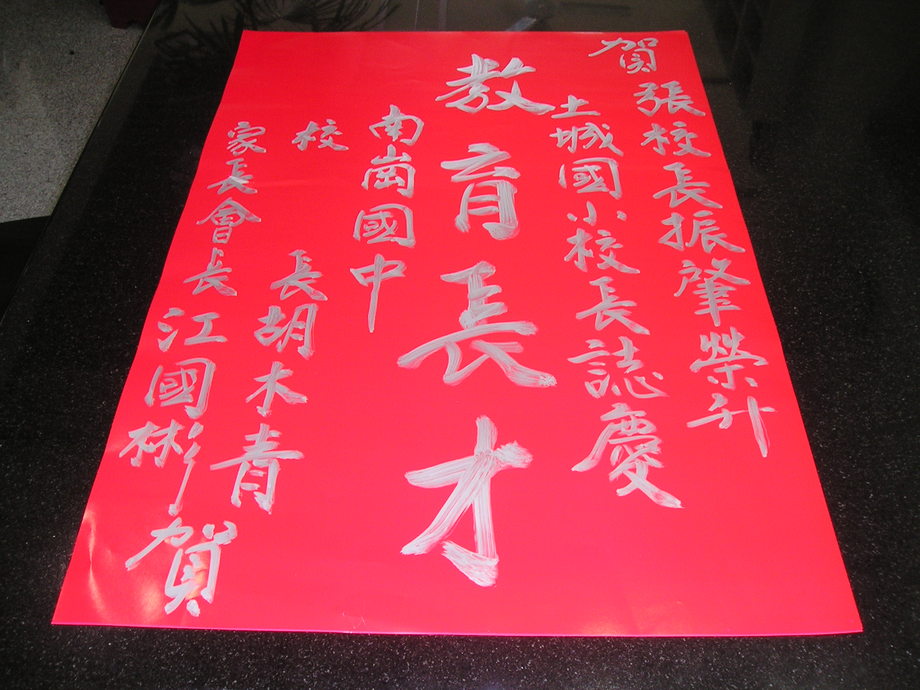 賀
張校長振肇榮升
土城國小校長誌慶
教育長才
南崗國中
校長胡木青
家長會長江國彬賀